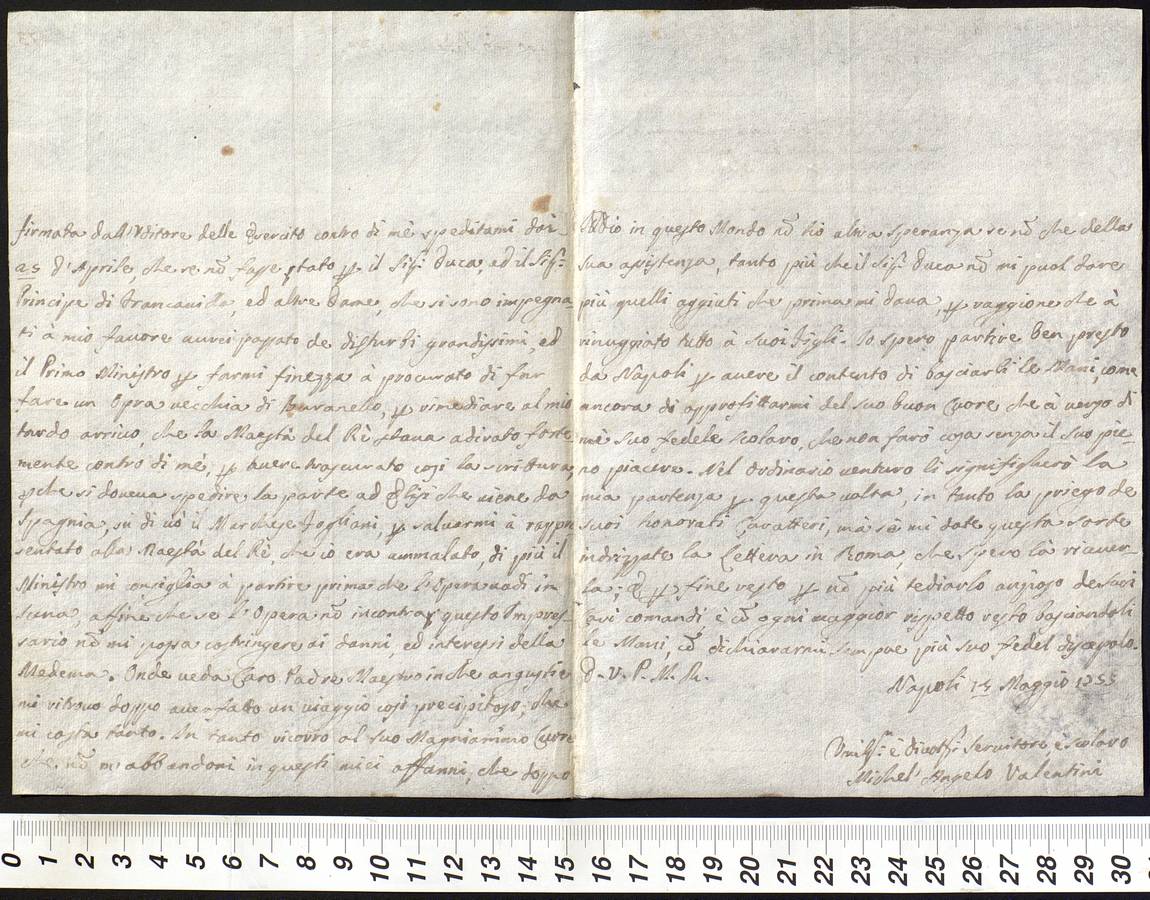 firmata dall'Vditore delle Esercito contro di mè speditami doi
25 d'Aprile che se nō fasse stato p il Sigr. Duca, ed il Sigr.
Principe di Francauilla, ed altre Dame, che si sono impegna-
ti à mio fauore aurei passato de disturbi grandissimi, ed
il Primo Ministro p farmi finezza à procurato di far
fare un Opra vecchia di Buranello, p rimediare al mio
tardo arriuo, che la Maestà del Rè staua adirato forte-
mente contro di mè, p auere trascurato così la scrittura,
pche si doueua spedire la parte ad Elisi che uiene da
Spagnia, sú di ciò il Marchese Fogliani, p saluarmi à rappre
sentato alla Maestà del Rè, che io era ammalato, di più il
Ministro mi consiglia à partire prima che l'Opera uadi in
scena, affine che se l'Opera nō incontra questo Impres-
sario nō mi possa costringere ai danni, ed interessi della
Medema. Onde ueda Caro Padre Maestro in che angustie
mi ritrouo doppo auer fatto un uiaggio così precipitoso, che
mi costa tanto. In tanto ricorro al suo Magnanimo Cuore
che nō m'abbandoni in questi miei affanni, che doppo
Iddio in questo Mondo nō hò altra speranza se nō che della
sua assistenza, tanto più che il Sigr. Duca nō mi puol dare
più quelli aggiuti che prima mi daua, p raggione che à
rinuggiato tutto à suoi Figli. Io spero partire ben presto
da Napoli p auere il contento di basciarli le Mani, come
ancora di approfittarmi del suo buon Cuore che à uerso di
mè suo fedele scolaro, che non farò cosa senza il suo pie-
no piacere. Nel Ordinario venturo li significherò la
mia partenza p questa volta, in tanto la priego de
suoi honorati Caratteri, mà se mi date questa sorte
indrizzate la Lettera in Roma, che spero là riauer-
la; E p fine resto p nō più tediarlo ansioso de suoi
cari comandi è cō ogni maggior rispetto resto basciandoli
le Mani, cō dichiararmi sempre più suo fedel discepolo.
D. V. P. M. R.
Napoli 14 Maggio 1755
Vmilss: è diuotss: Seruitore, è scolaro
Michel' Angelo Valentini